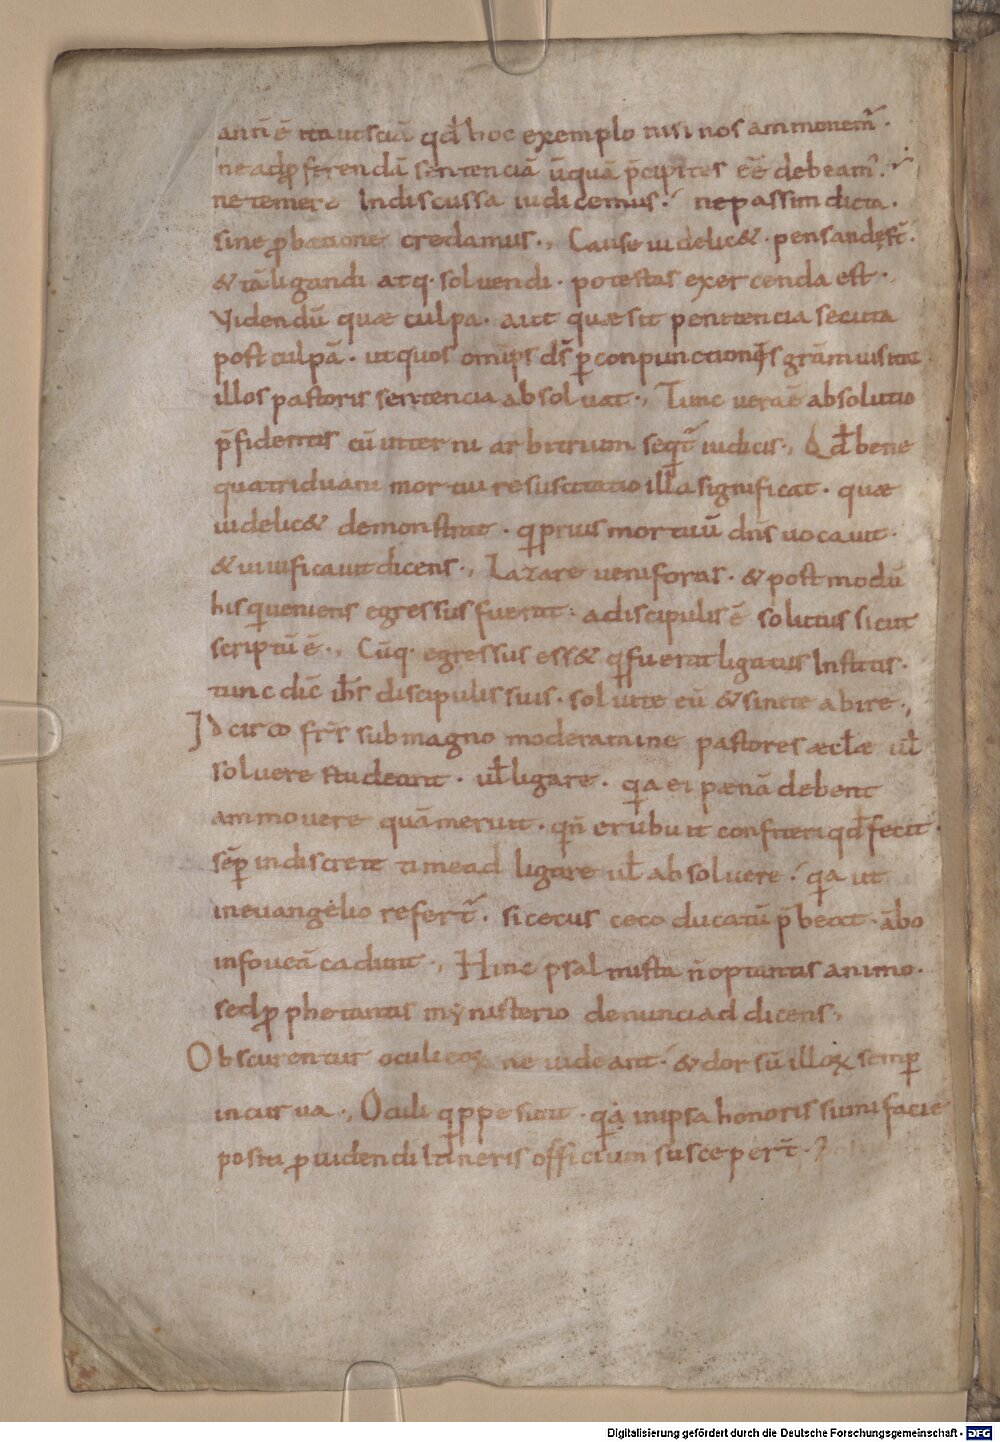 ann̄ ē ita ut sciā qd̄ hoc exemplo nisi nos ammonem̄.
ne ad ꝓferendā sentenciā ūquā p̄cipites eē debeam̄.
ne temere Indiscussa iudicemus. ne passim dicta.
sine ꝓbatione credamus., Cause uidelic&. pensandę s̄t.
& tā ligandi atq. soluendi. potestas exercenda est.
Videndū quæ culpa. aut quæ sit penitencia secuta
post culpā. ut quos omīps ds̄ ꝑ conpunctionis grām uisitat
illos pastoris sentencia absoluat., Tunc uera ē absolutio
p̄sidentis cū interni arbitrium seqt̄ iudicis., Qd̄ bene
quatriduani mortui resuscitatio illa significat. quæ
uidelic& demonstrat. q prius mortuū dn̄s uocauit.
& uiuificauit dicens., Lazare ueni foras. & postmodū
his qui ueniens egressus fuerat. a discipulis ē solutus sicut
scriptū ē., Cūq. egressus ess& q fuerat ligatus Institis.
tunc dic̄ ih̄s discipulis suis. soluite eū & sinite abire.,
IDcirco fr̄s sub magno moderamine pastores æcl̄æ ul̄
soluere studeant. ul̄ ligare. qa ei pænā debent
ammouere quā meruit. qn̄ erubuit confiteri qd̄ fecit.
sēꝑ indiscrete timead ligare ul̄ absoluere. qa ut
in euangelio refert̄. si cecus ceco ducatū p̄beat. ābo
in foueā cadunt., Hinc psalmista n̄ optantis animo.
sed ꝓphetantis mẏnisterio denunciad dicens.,
Obscurentur oculi eoꝝ ne uideant. & dorsū illoꝝ semꝑ
incurua., Oculi qppe sunt. qa in ipsa honoris sūmi faciē
positi ꝓuidendi Itineris officium suscepert̄.
Digitalisierung gefördert durch die Deutsche Forschungsgemeinschaft - DFG